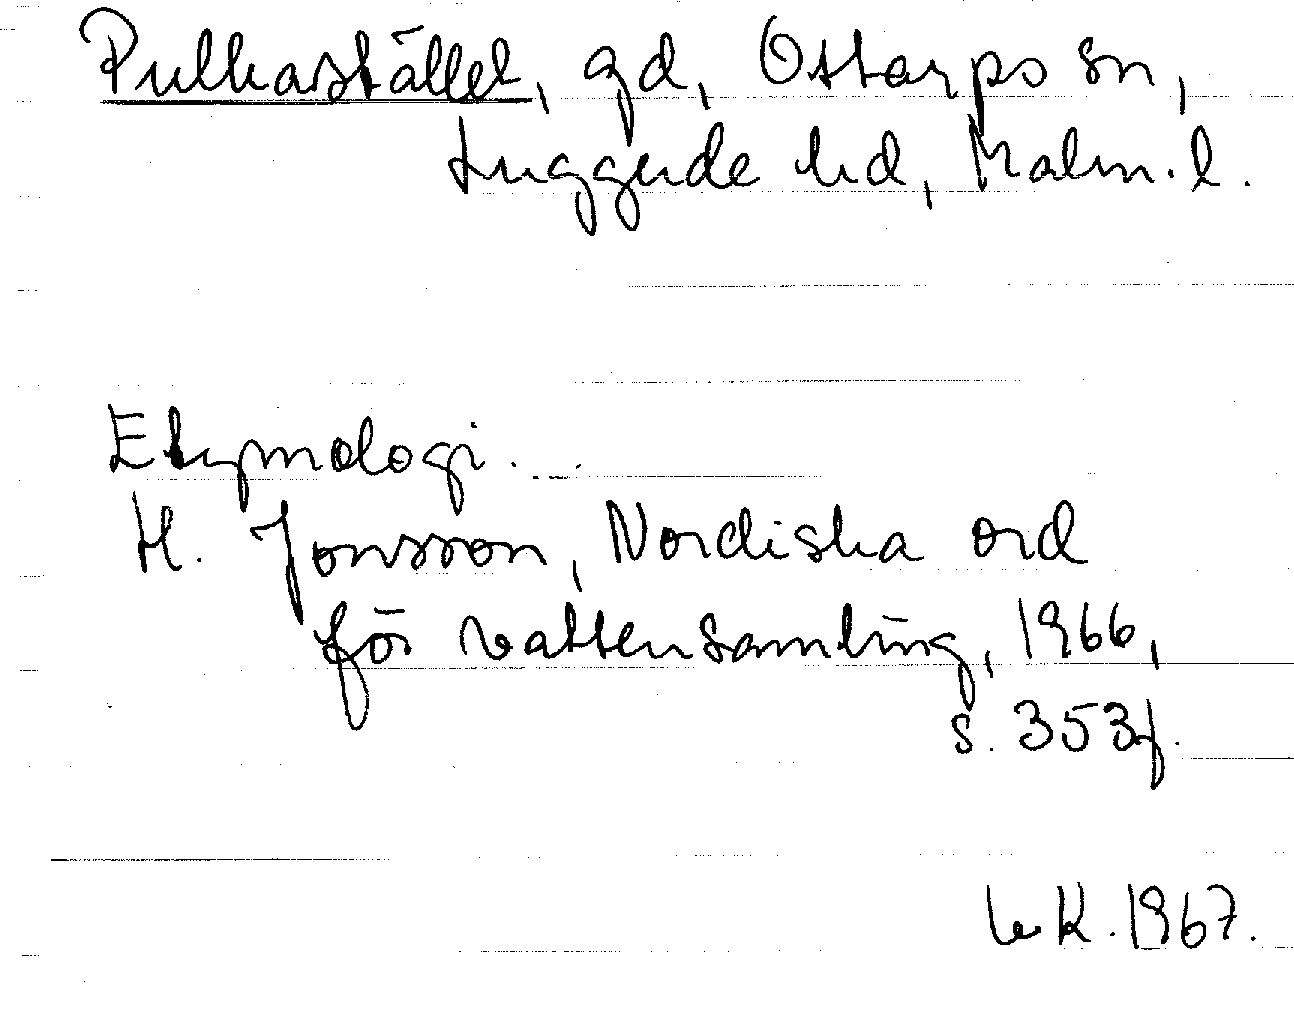 Pulkastället, gd, Ottarps sn,
Luggude hd, Malm. l.
Etymologi.
H. Jonsson, Nordiska ord
för vattensamling, 1966,
s. 353f.
K. 1967.